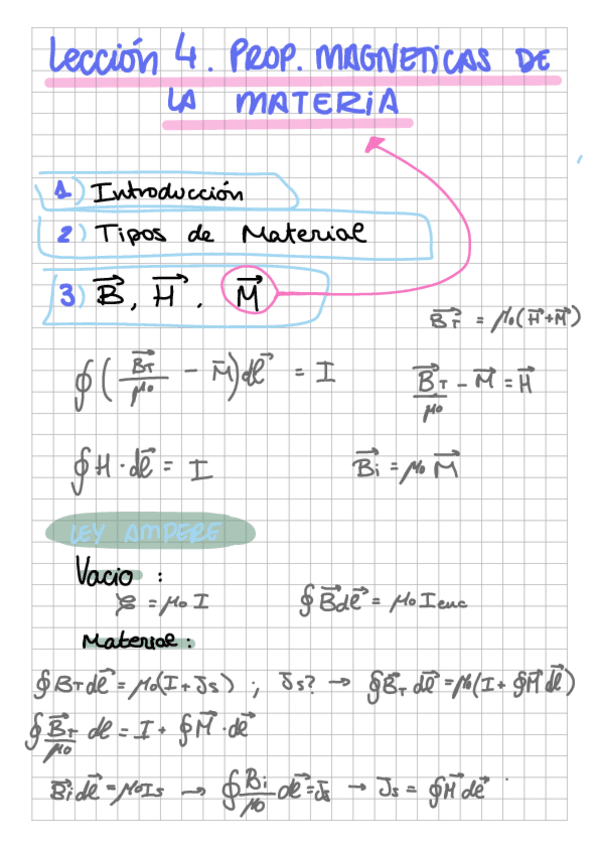 Lección 4. PROP. MAGNETICAS DE
LA MATERIA
1) Introducción
2) Tipos de Material
3) B⃗, H⃗, M⃗
B⃗T = μ0(H⃗+M⃗)
∮(B⃗T/μ0 - M⃗)dl⃗ = I
B⃗T/μ0 - M⃗ = H⃗
∮H·dl⃗ = I
B⃗i = μ0 M⃗
LEY AMPERE
Vacio :
= μ0 I
∮B⃗dl⃗ = μ0 Ienc
Material :
∮BT dl⃗ = μ0(I+Js) ; Js? → ∮B⃗T dl⃗ = μ0(I+ ∮M⃗ dl⃗)
∮B⃗T/μ0 dl = I + ∮M⃗·dl⃗
B⃗i dl⃗ = μ0Is → ∮Bi/μ0 dl⃗ = Js → Js = ∮M⃗ dl⃗